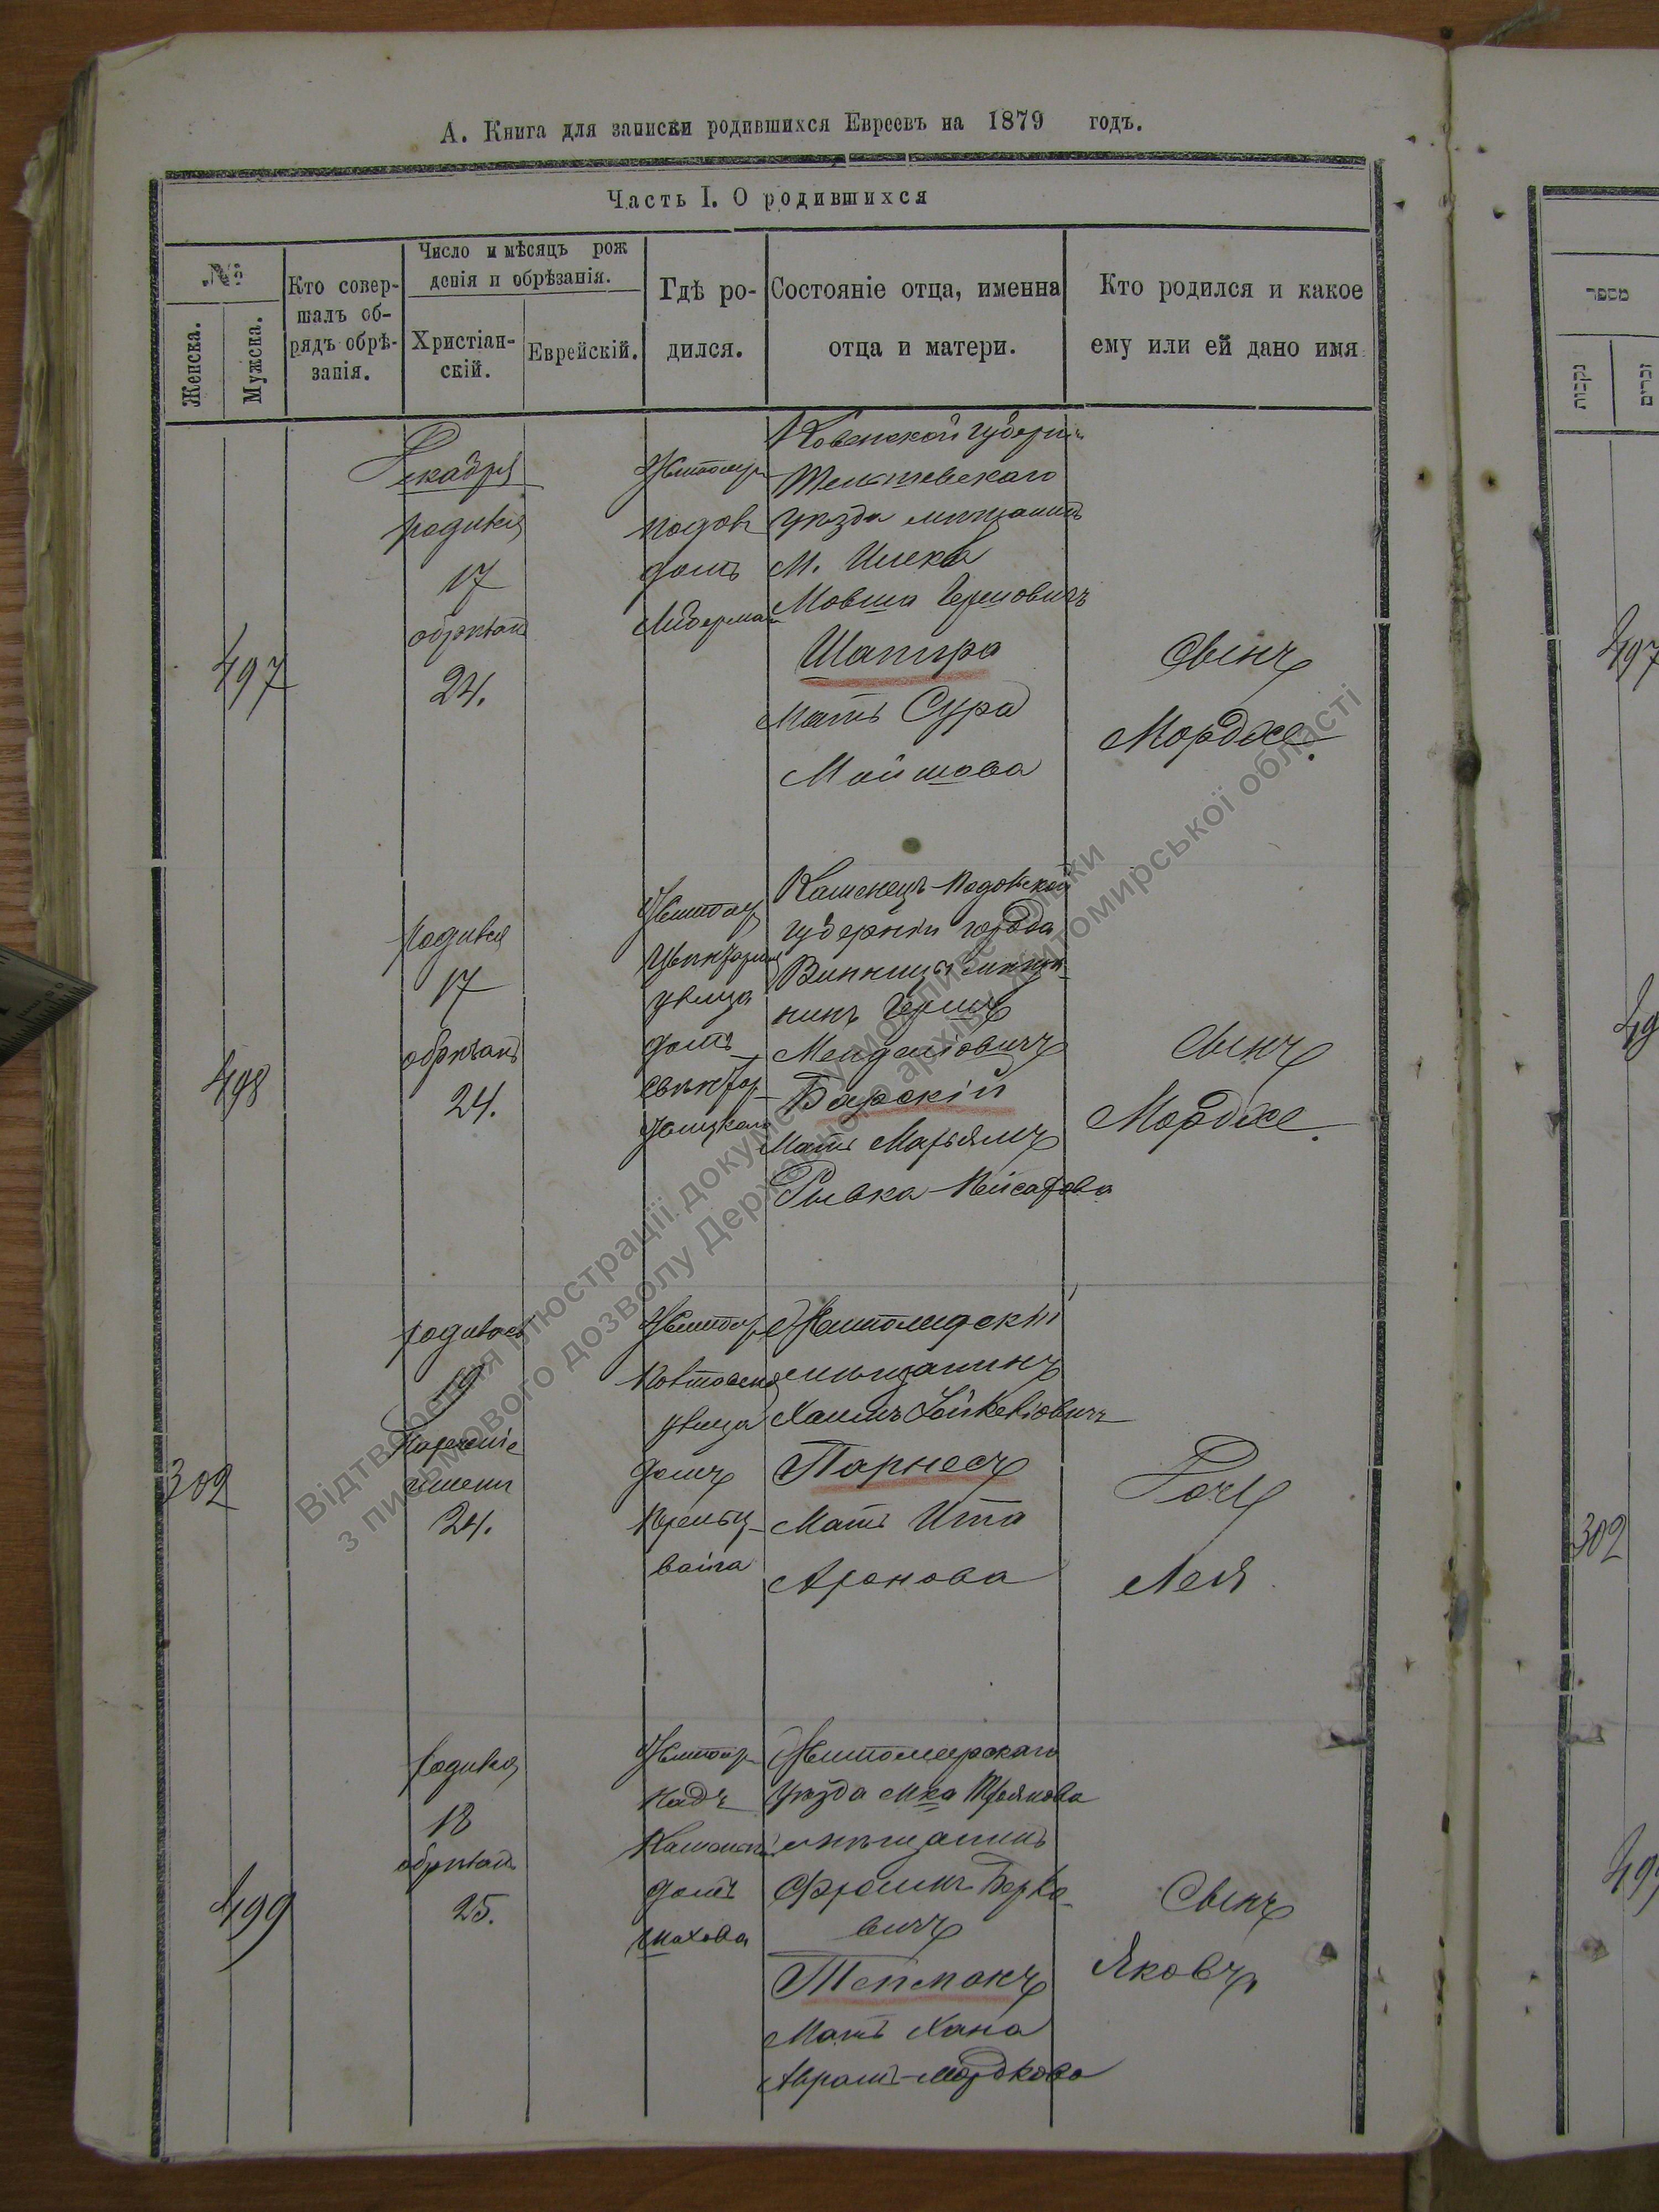 А. Книга для записки родившихся Евреевъ на 1879 годъ.
Часть I. О родившихся
№
Женска.
Мужска.
Кто совер-
шалъ об-
рядъ обрѣ-
занія.
Число и мѣсяцъ рож
денія и обрѣзанія.
Христіан-
скій.
Еврейскій.
Гдѣ ро-
дился.
Состояніе отца, именна
отца и матери.
Кто родился и какое
ему или ей дано имя
497
Декабря
родился
17
обрѣзанъ
24.
Житомир
домъ
Ковенской губерніи
Тельшевскаго
уѣзда мѣщанинъ
М.
Мовша Гершовичъ
Шапира
Мать Сура
Мойшова
Сынъ
Мордхе.
498
родился
17
обрѣзанъ
24.
Житомир
улица
домъ
Каменецъ-Подольской
губерніи города
Винницы мѣща-
нинъ Гершъ
Менделіовичъ
Барскій
Мать Марьямъ
Рывка-Пейсахова
Сынъ
Мордхе.
302
родилась
19
Нареченіе
имени
24.
Житомир
улица
домъ
Житомирскій
мѣщанинъ
Хаимъ
Парнесъ
Мать Ита
Аронова
Дочь
Лея
499
родился
18
обрѣзанъ
25.
Житомир
надъ
домъ
Житомирскаго
уѣзда мка Троянова
мѣщанинъ
Фроимъ Берко-
вичъ
Тепманъ
Мать Хана
Аврамъ-Мордкова
Сынъ
Яковъ
Відтворення ілюстрації документу можливе тільки
з письмового дозволу Державного архіву Житомирської області
מספר
נקבות
זכרים
497
302